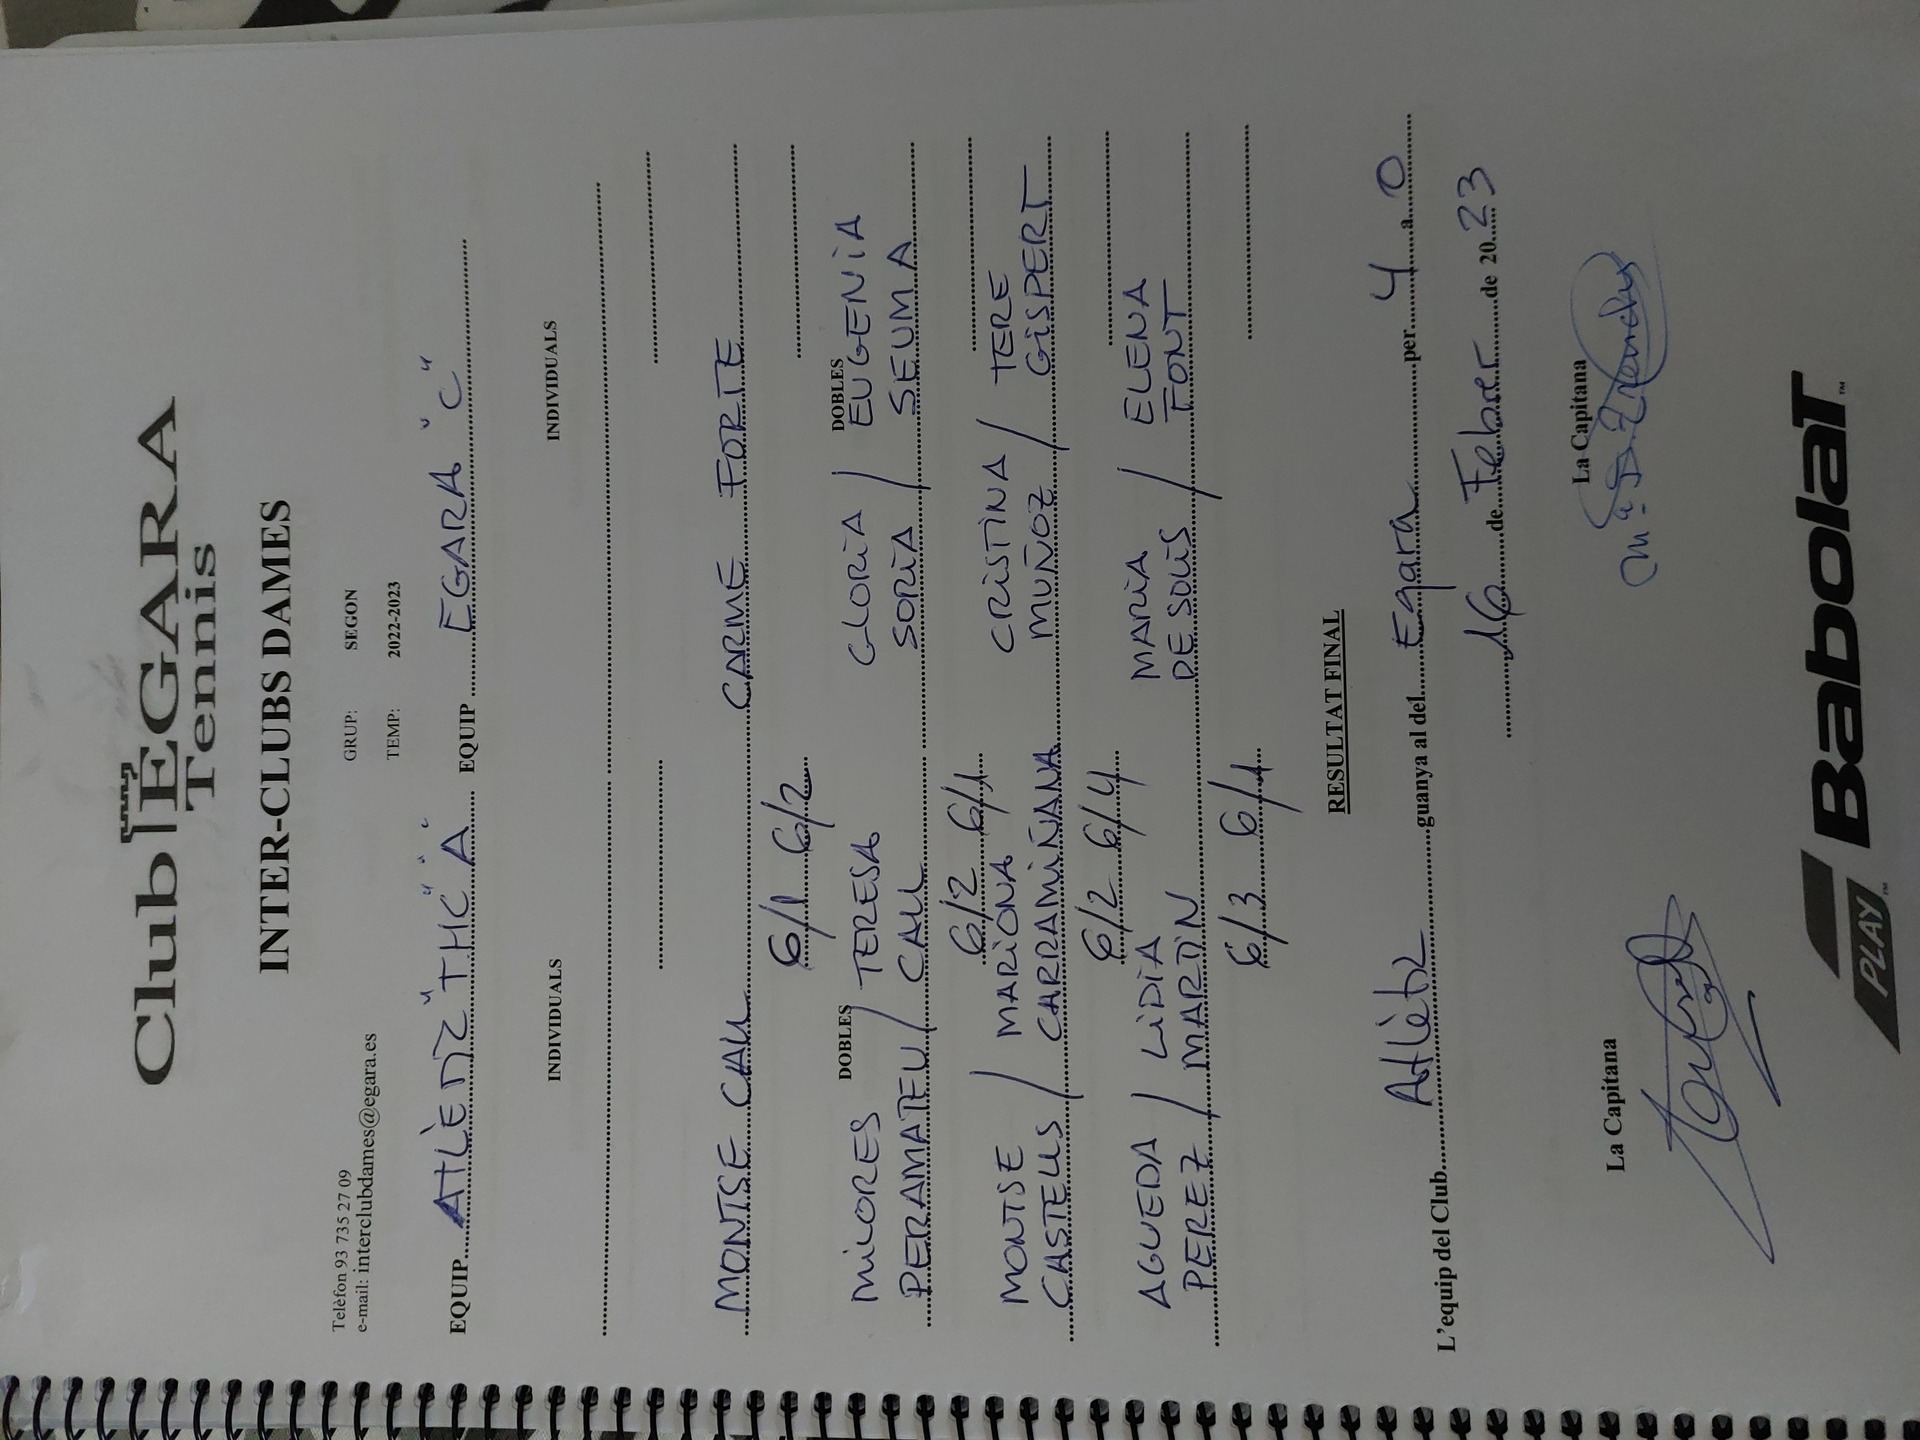 Club EGARA
Tennis
INTER-CLUBS DAMES
GRUP: SEGON
Telèfon 93 735 27 09
e-mail: interclubdames@egara.es
TEMP: 2022-2023
EQUIP ATLÈTIC "THC" "A" EQUIP EGARA "C"
INDIVIDUALS INDIVIDUALS
MONTSE CALL CARME FORTE
6/1 6/2
DOBLES DOBLES
MILORES / TERESA GLORIA / EUGENIA
PERAMATEU / CALL SORIA / SEUMA
6/2 6/1
MONTSE / MARIONA CRISTINA / TERE
CASTELLS / CARRAMIÑANA MUÑOZ / GISPERT
6/2 6/4
AGUEDA / LIDIA MARIA / ELENA
PEREZ / MARTIN DE SOLIS / FONT
6/3 6/1
RESULTAT FINAL
L'equip del Club Atlètic guanya al del Egara per 4 a 0
16 de Febrer de 2023
La Capitana La Capitana
PLAY Babolat